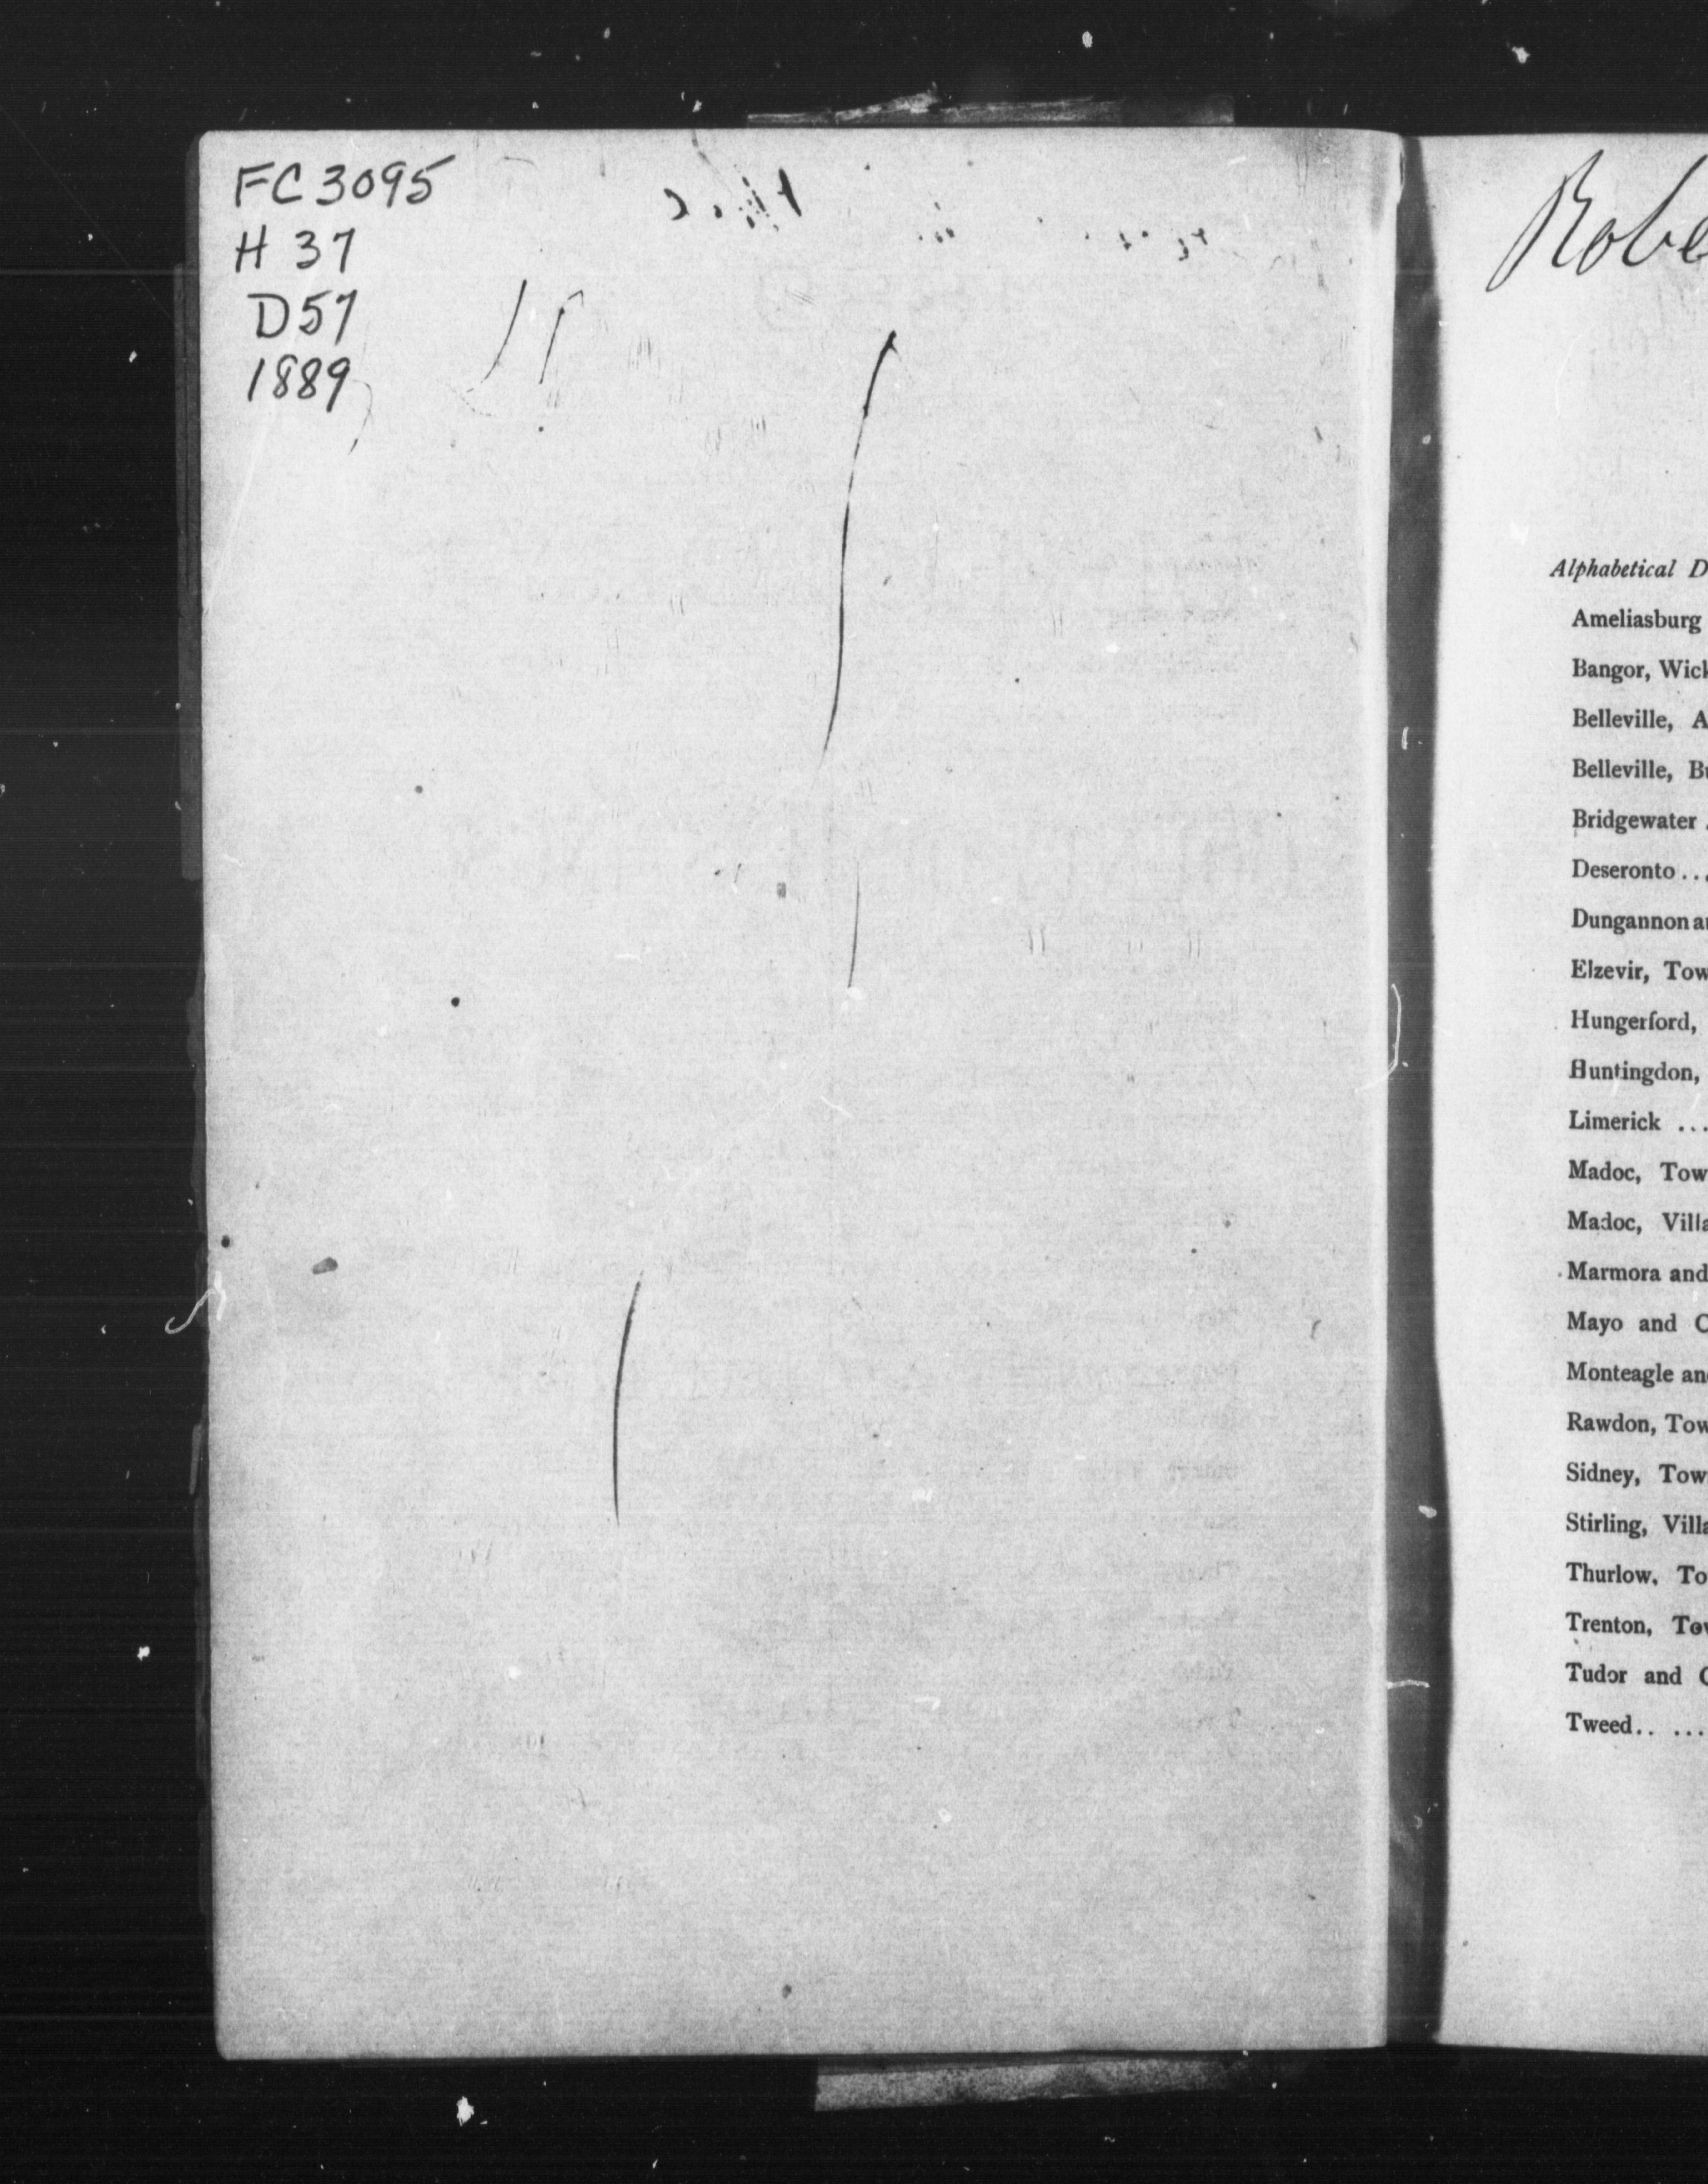 FC 3095
H 37
D57
1889
Alphabetical
Ameliasburg
Bangor,
Belleville,
Belleville,
Bridgewater
Deseronto ...
Dungannon
Elzevir,
Hungerford,
Huntingdon,
Limerick ...
Madoc,
Madoc,
Marmora and
Mayo and
Monteagle
Rawdon,
Sidney,
Stirling,
Thurlow,
Trenton,
Tudor and
Tweed.. ...